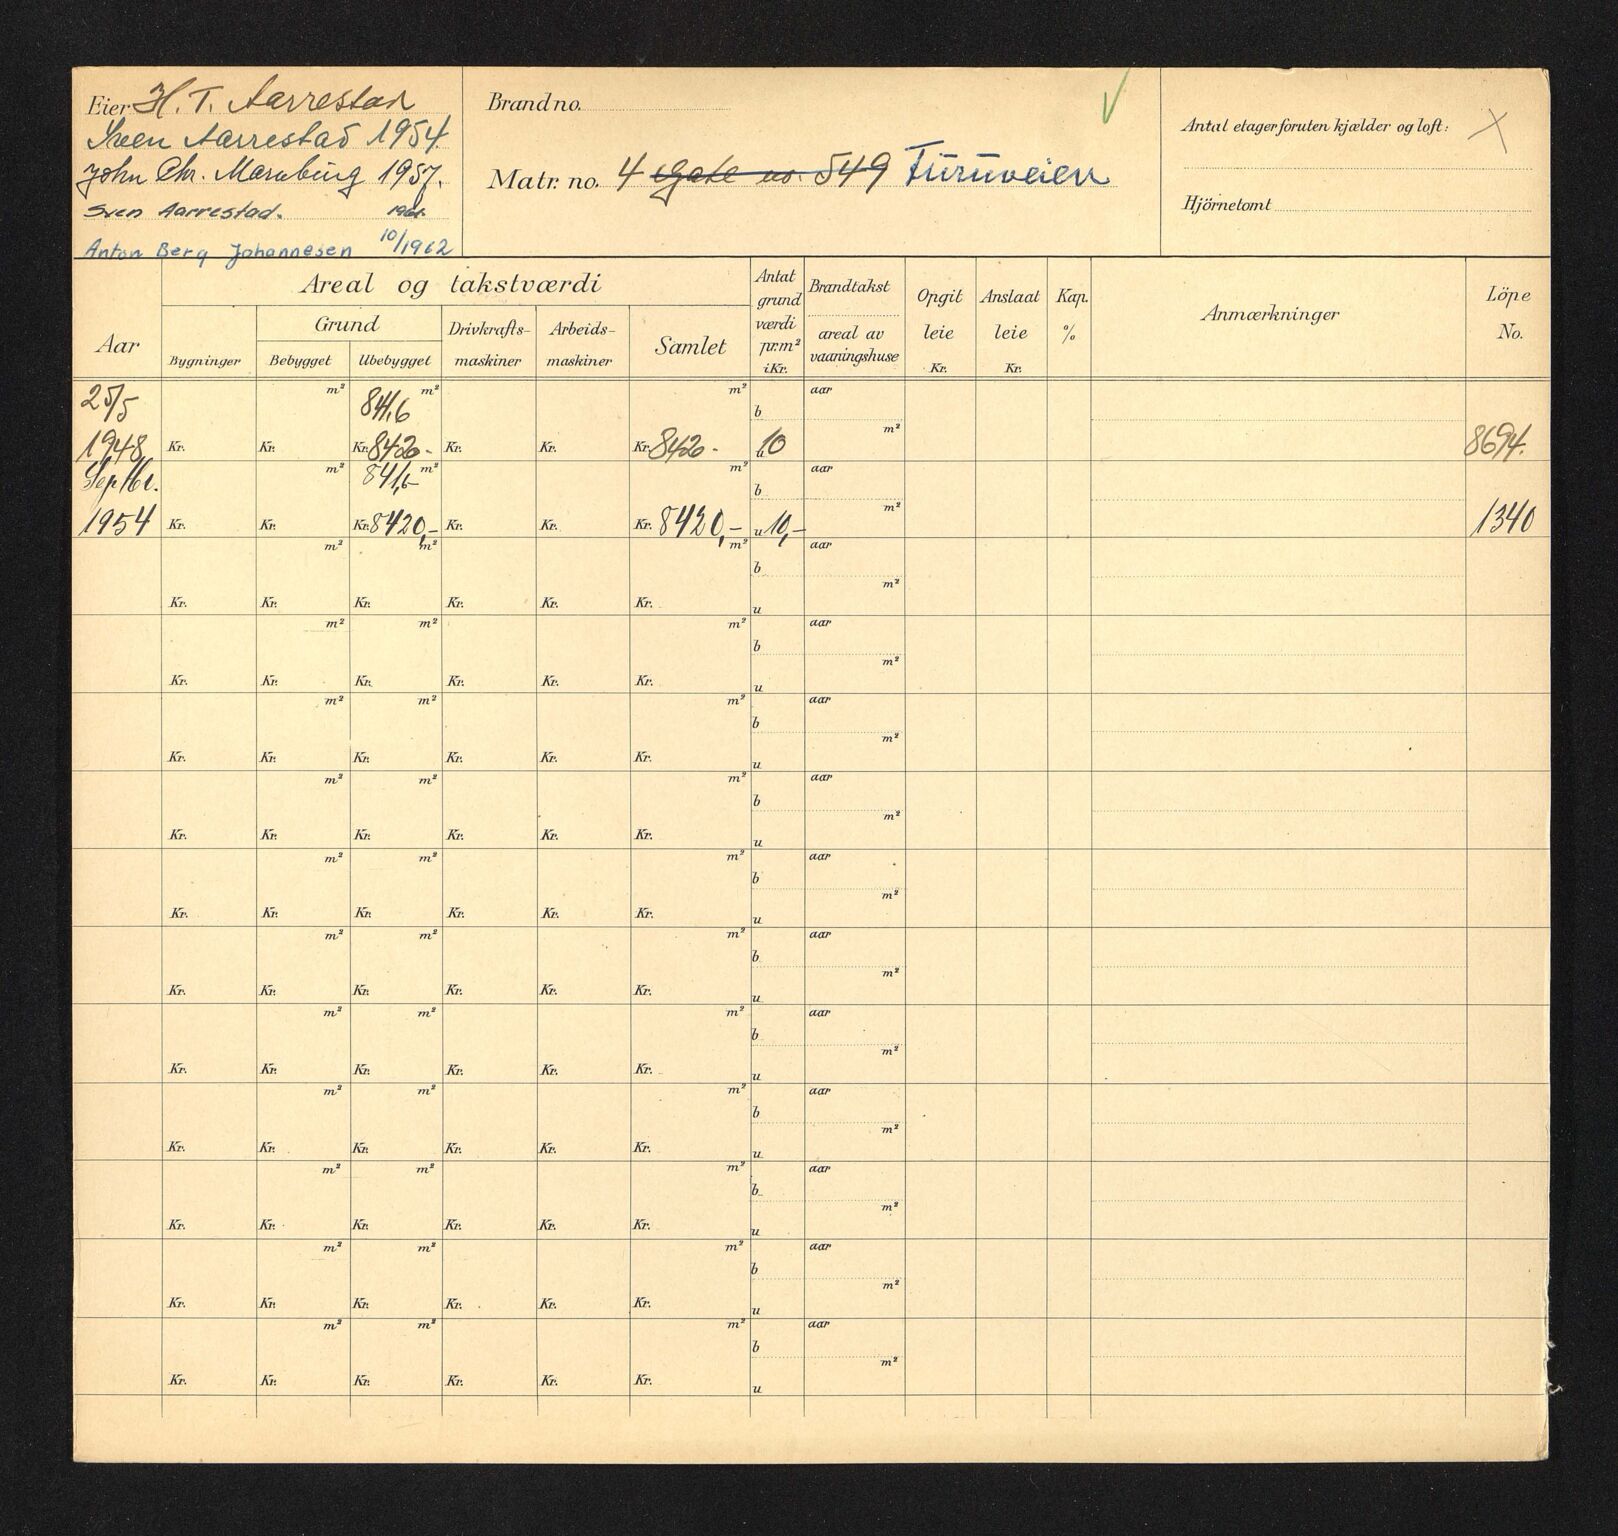 Eier H. T. Aarrestad
Sven Aarrestad 1954.
John Chr. 1957.
Sven Aarrestad. 1961.
Anton Berg Johannesen 10/1962
Brand no.
Matr. no. 4 Gate no. 549 Furuveien
Antal etager foruten kjælder og loft:
X
Hjörnetomt
Aar
Areal og takstværdi
Bygninger
Grund
Bebygget
Ubebygget
Drivkrafts-
maskiner
Arbeids-
maskiner
Samlet
Antat
grund
værdi
pr. m²
i Kr.
Brandtakst
areal av
vaaningshuse
Opgit
leie
Kr.
Anslaat
leie
Kr.
Kap.
%
Anmærkninger
Löpe
No.
25/5 m² 841,6 m² m² b aar
1948 Kr. Kr. Kr. 8420- Kr. Kr. Kr. 8420- u 10 m² 8694.
Septbr. m² 841,6 m² m² b aar
1954 Kr. Kr. Kr. 8420,- Kr. Kr. Kr. 8420,- u 10,- m² 1340
m² m² m² b aar
Kr. Kr. Kr. Kr. Kr. Kr. u m²
m² m² m² b aar
Kr. Kr. Kr. Kr. Kr. Kr. u m²
m² m² m² b aar
Kr. Kr. Kr. Kr. Kr. Kr. u m²
m² m² m² b aar
Kr. Kr. Kr. Kr. Kr. Kr. u m²
m² m² m² b aar
Kr. Kr. Kr. Kr. Kr. Kr. u m²
m² m² m² b aar
Kr. Kr. Kr. Kr. Kr. Kr. u m²
m² m² m² b aar
Kr. Kr. Kr. Kr. Kr. Kr. u m²
m² m² m² b aar
Kr. Kr. Kr. Kr. Kr. Kr. u m²
m² m² m² b aar
Kr. Kr. Kr. Kr. Kr. Kr. u m²
m² m² m² b aar
Kr. Kr. Kr. Kr. Kr. Kr. u m²
m² m² m² b aar
Kr. Kr. Kr. Kr. Kr. Kr. u m²